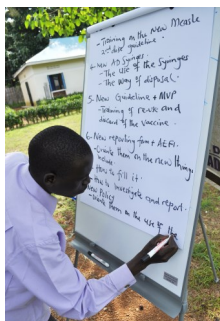 - Training on the new Measle
2nd dose guideline.
4- New AD Syringes.
- The use of the Syringes
- The way of disposal.
5- New Guideline + MVP
- Training of reuse and
discard of the vaccine.
6- New reporting form + AEFI.
- Orientate them on the new things
include
- How to fill it.
- How to investigate and report.
New Policy
- Orientate them on the use of the